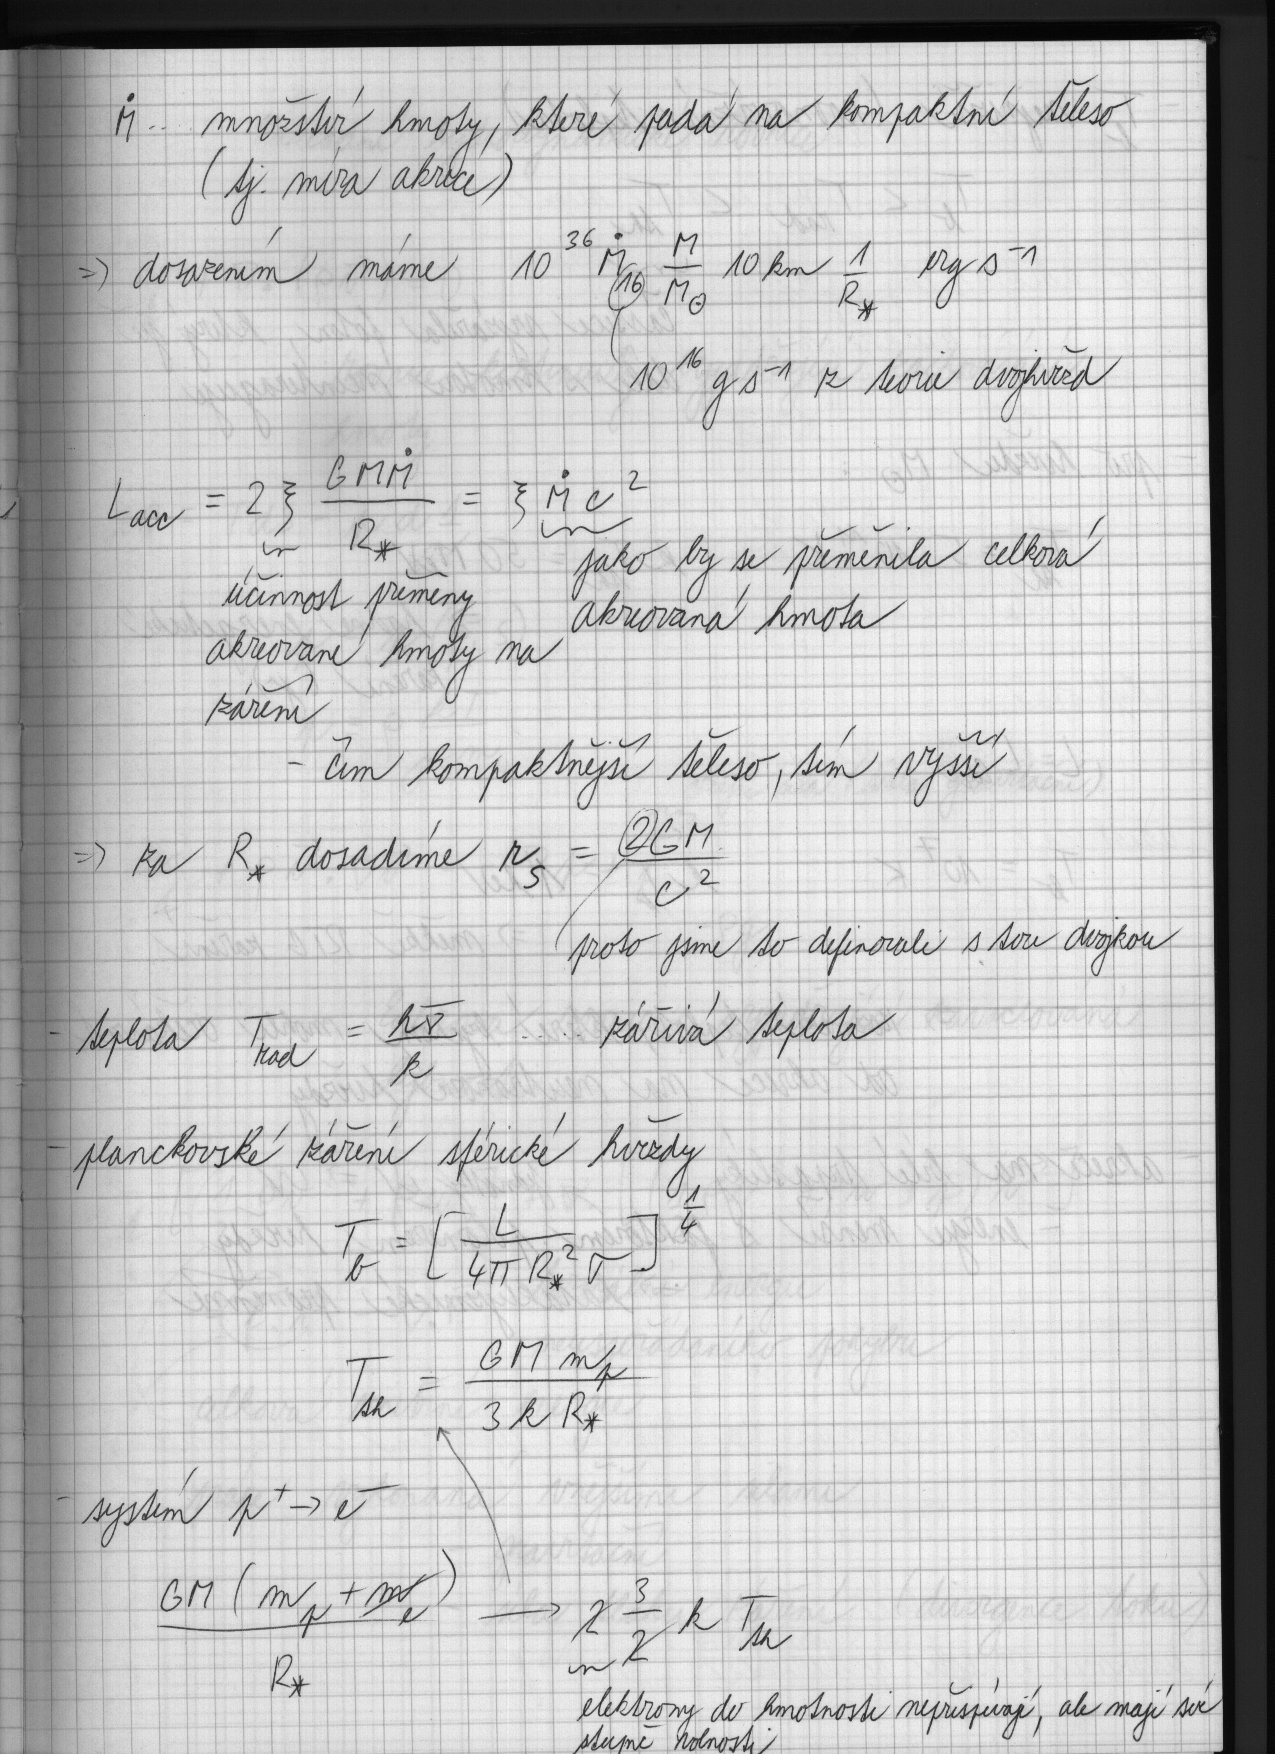 Ṁ .. množství hmoty, které padá na kompaktní těleso
(tj. míra akrece)
=> dosazením máme 10^36 Ṁ_16 M/M_⊙ 10 km 1/R_* erg s^-1
10^16 g s^-1 z teorie dvojhvězd
L_acc = 2 ξ GMṀ/R_* = ξ Ṁ c^2
účinnost přeměny
akreované hmoty na
záření
jako by se přeměnila celková
akreovaná hmota
- čím kompaktnější těleso, tím vyšší
=> za R_* dosadíme r_s = 2GM/c^2
proto jsme to definovali s tou dvojkou
- teplota T_rad = hν̅/k .... zářivá teplota
- planckovské záření sférické hvězdy
T_b = [L/4πR_*^2 σ]^1/4
T_th = GM m_p/3kR_*
- systém p^+ -> e^-
GM (m_p + m_e)/R_* ⟶ 2 3/2 k T_th
elektrony do hmotnosti nepřispívají, ale mají své
stupně volnosti